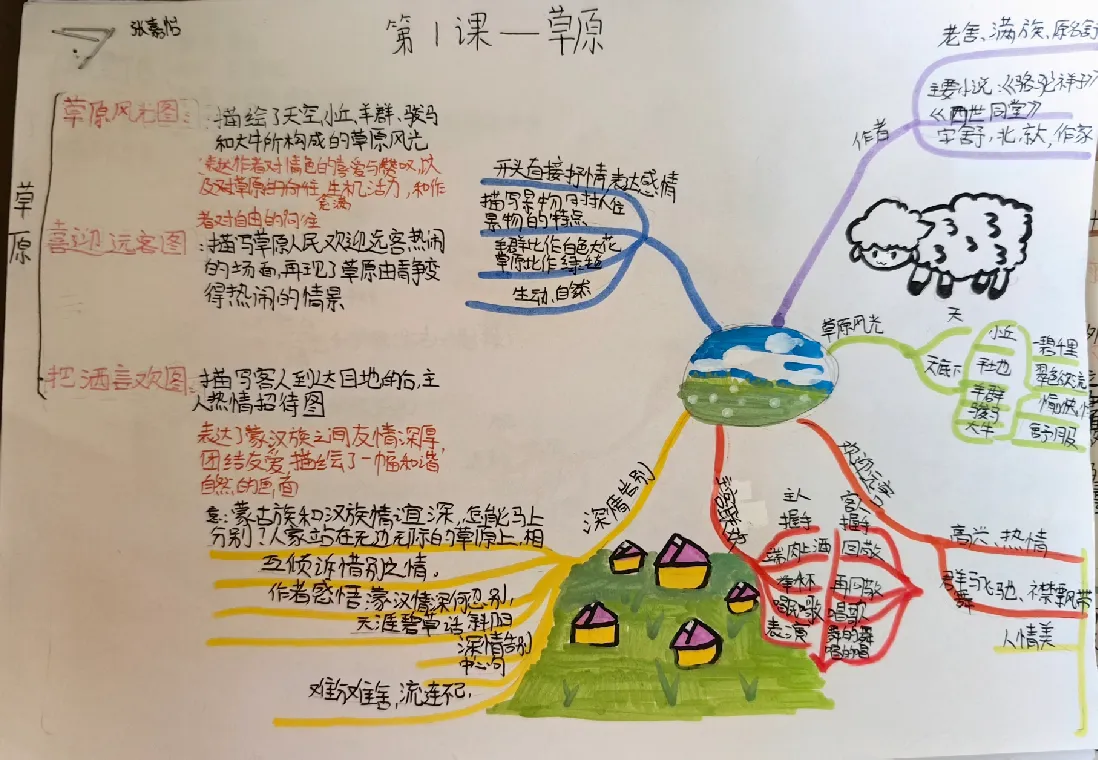 张嘉怡
第1课—草原
草原
草原风光图:
描绘了天空,小丘,羊群、骏马
和大牛所构成的草原风光
表达作者对景色的喜爱与赞叹,以
及对草原的向往,生机活力,和作
充满
者对自由的向往
喜迎远客图
:描写草原人民欢迎远客热闹
的场面,再现了草原由静变
得热闹的情景
把酒言欢图:
描写客人到达目地的后,主
人热情招待图
表达了蒙汉族之间友情深厚,
团结友爱,描绘了一幅和谐
自然的画面
开头直接抒情,表达感情
描写景物,
景物的特点
羊群比作白色大花
草原比作绿毯
生动、自然
作者
老舍、满族、原名舒
主要小说:《骆驼祥子》
《四世同堂》
字舍予,北京人,作家
草原风光
天
天底下
小丘
平地
羊群
骏马
大牛
一碧千里
翠色欲流
愉快,
舒服
欢迎远客
高兴、热情
群马飞驰、襟飘带
舞
人情美
主人
握手
客人
握手
端肉上酒
回敬
举杯
再回敬
唱民歌
唱歌
表演
舞的舞
唱的唱
深情告别
意:蒙古族和汉族情谊深,怎能马上
分别?人家站在无边无际的草原上,相
互倾诉惜别之情。
作者感悟:蒙汉情深何忍别,
天涯碧草话斜阳
深情告别
中心句
难分难舍,流连不已,